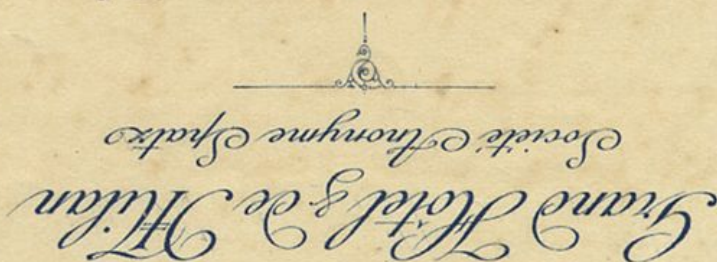 Grand Hôtel & de Milan
Société Anonyme Spatz